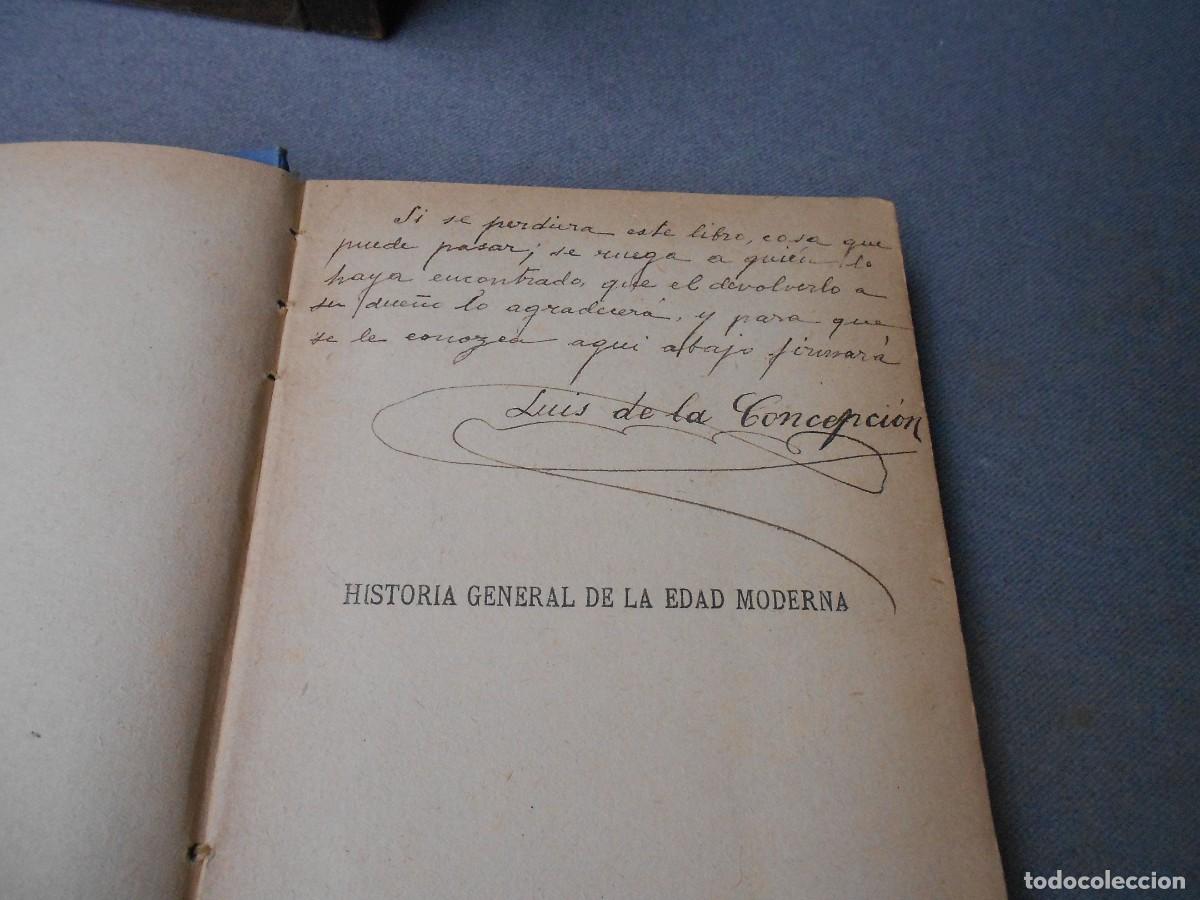 Si se perdiera este libro, cosa que
puede pasar; se ruega a quién lo
haya encontrado, que el devolverlo a
su dueño lo agradecerá, y para que
se le conozca aqui abajo firmará
Luis de la Concepción
HISTORIA GENERAL DE LA EDAD MODERNA
todocoleccion